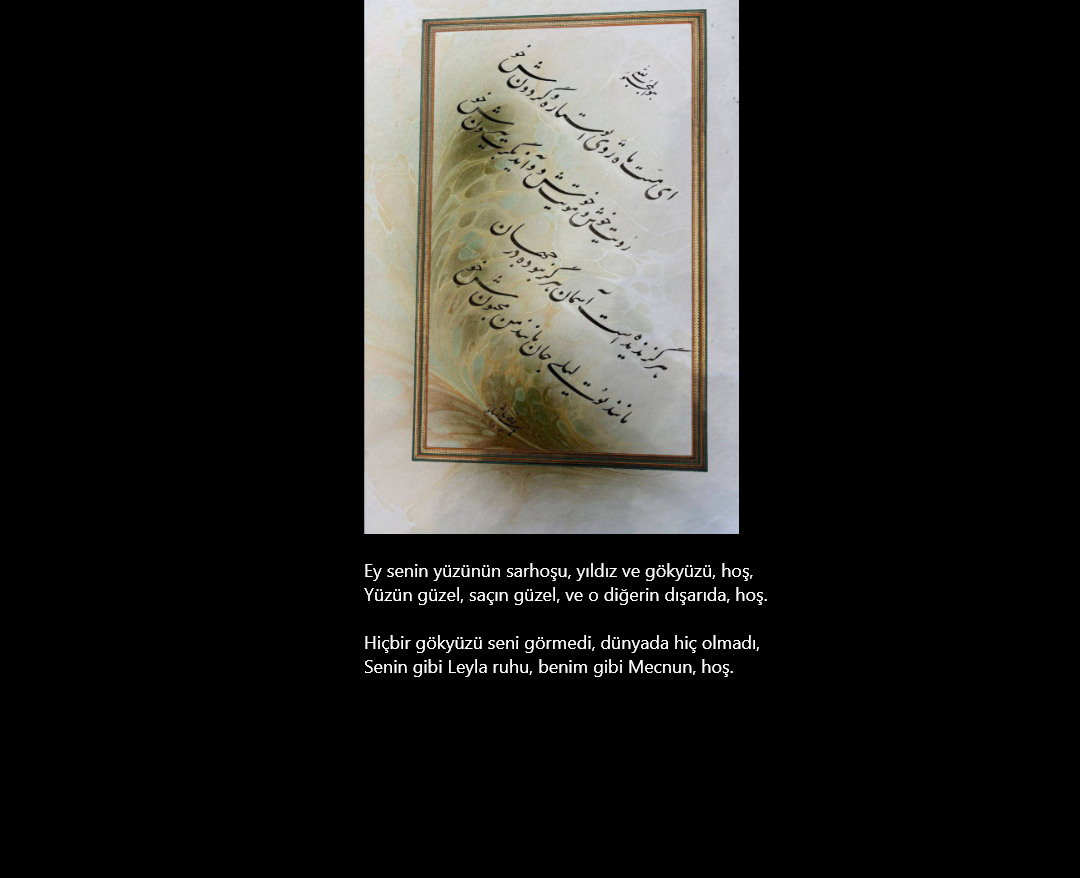 ای مست ماه روی تو استاره و گردون خوش خو
رویت خوش و مویت خوش و آن دیگرت بیرون خوش خو
هرگز ندیده است آسمان هرگز نبوده در جهان
مانند تو لیلی جان مانند من مجنون خوش خو
Ey senin yüzünün sarhoşu, yıldız ve gökyüzü, hoş,
Yüzün güzel, saçın güzel, ve o diğerin dışarıda, hoş.
Hiçbir gökyüzü seni görmedi, dünyada hiç olmadı,
Senin gibi Leyla ruhu, benim gibi Mecnun, hoş.